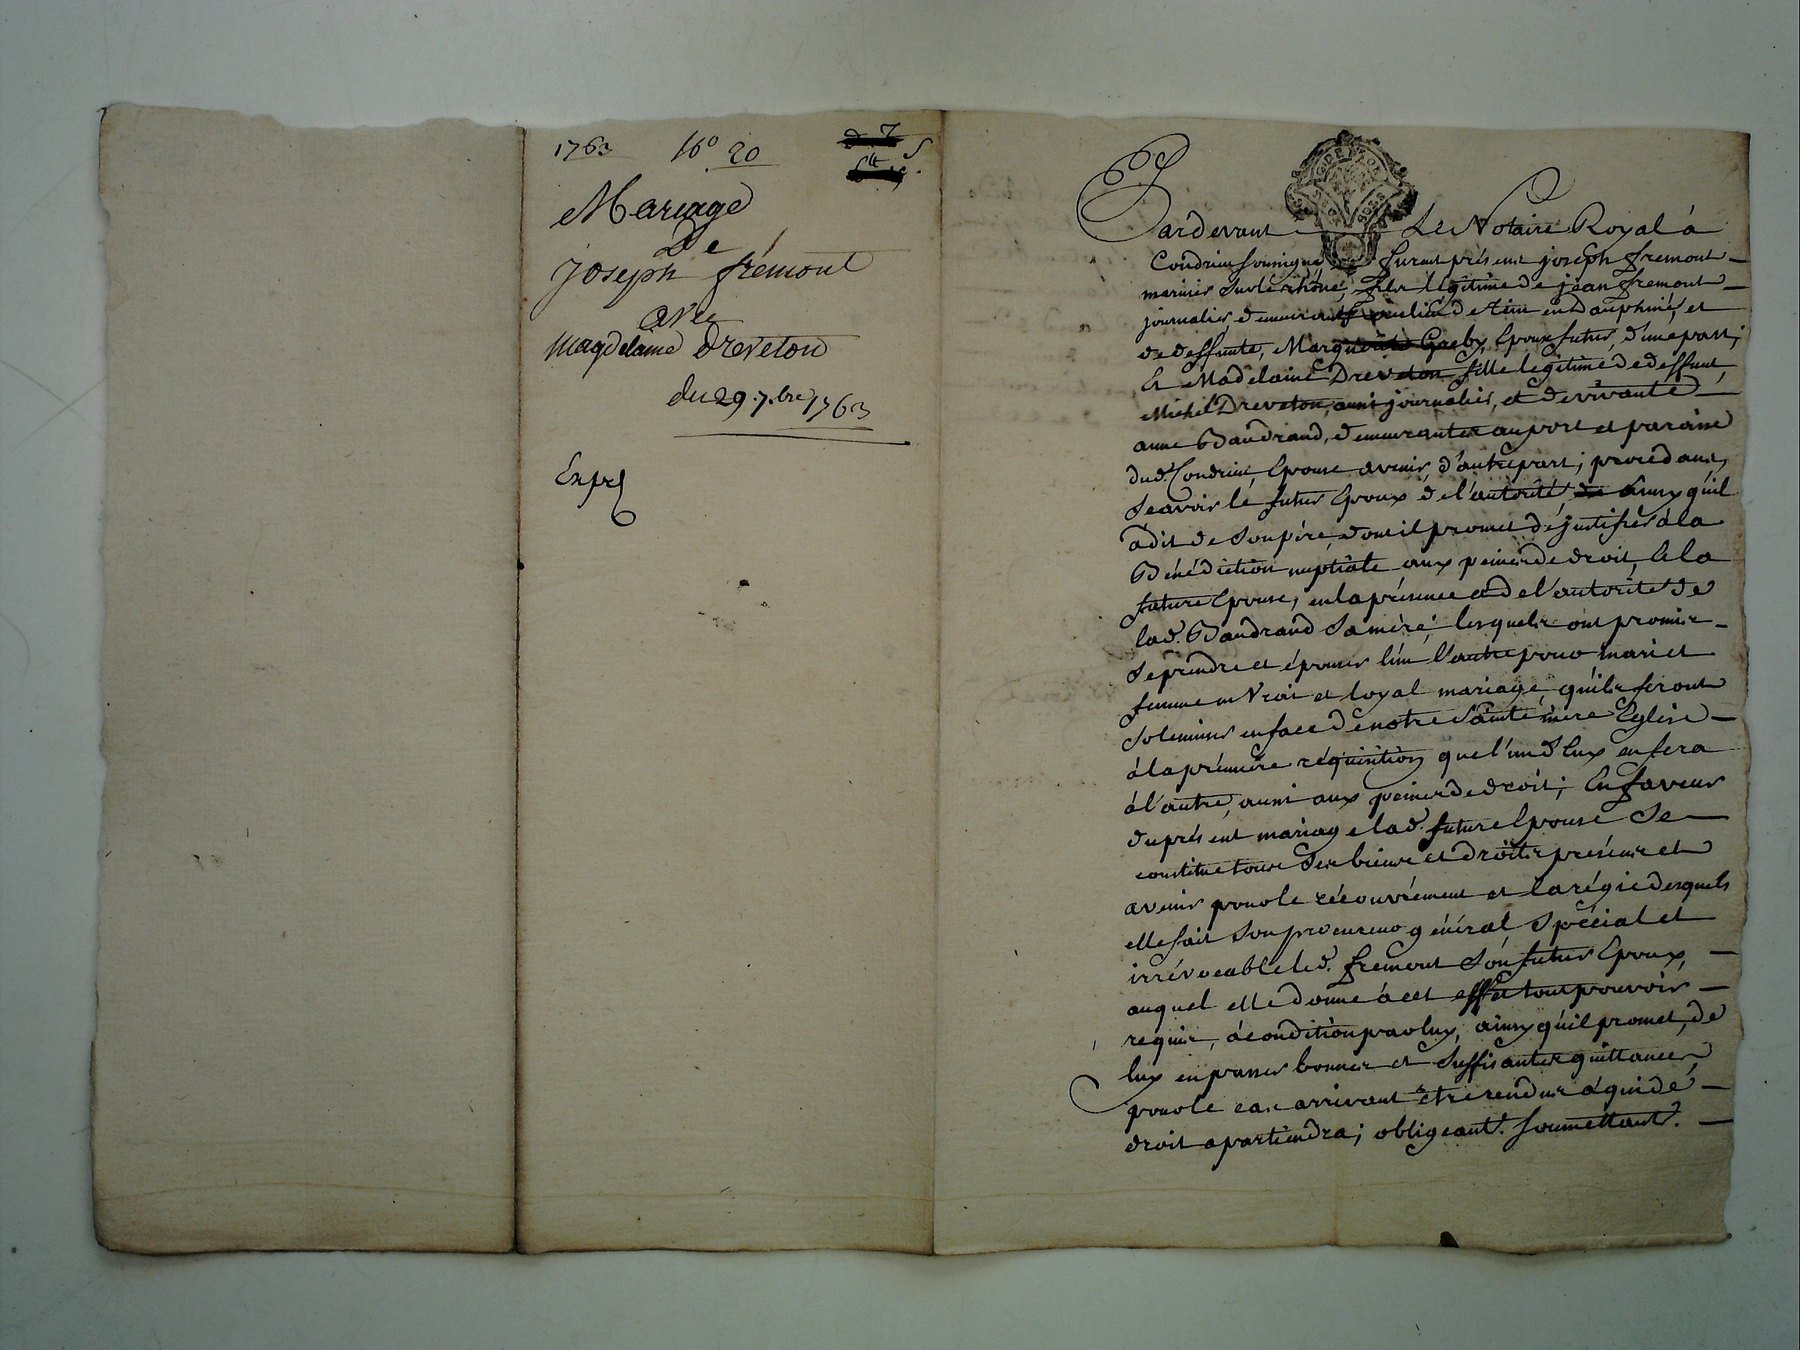 1763 16° 20
Mariage
De
Joseph frémont
avec
Magdelaine Dreveton
du 29. 7.bre 1763
Expé
Pardevant Le Notaire Royal à
Condrieu soussigné furent présens joseph fremont
marinier sur le rhône, fils légitime de jean fremont
journalier demeurant au lieu de en Dauphiné, et
de deffunte, Marguerite Epoux futur, d'une part;
Et Madelaine Dreveton fille légitime de deffunt
Michel Dreveton, aussi journalier, et de vivante
anne Baudrand, demeurantes au port et paroisse
dud. Condrieu, Epouse avenir, d'autre part; procédans,
Scavoir le futur Epoux de l'autorité ainsy qu'il
a dit de son père, dont il promet de justifier à la
Bénédiction nuptiale aux peines de droit, Et la
future Epouse, en la présence et de l'autorité de
lad. Baudrand sa mère; lesquels ont promis
se prendre et épouser l'un l'autre pour mari et
femme en vrai et loyal mariage, qu'ils feront
solemniser en face de notre Sainte mère Eglise
à la première réquisition que l'un d'Eux en fera
à l'autre, aussi aux peines de droit; En faveur
du présent mariage lad. future Epouse Se
constitue tous ses biens et droits présens et
avenir pour le recouvrément et la régie desquels
elle fait son procureur général spécial et
irrévocable led. fremont son futur Epoux,
auquel elle donne à cet effet tout pouvoir
requis, à condition par luy, ainsy qu'il promet, de
luy en passer bonnes et suffisantes quittances,
pour le cas arrivant être rendus à qui de
droit apartiendra; obligeant. soumettant.